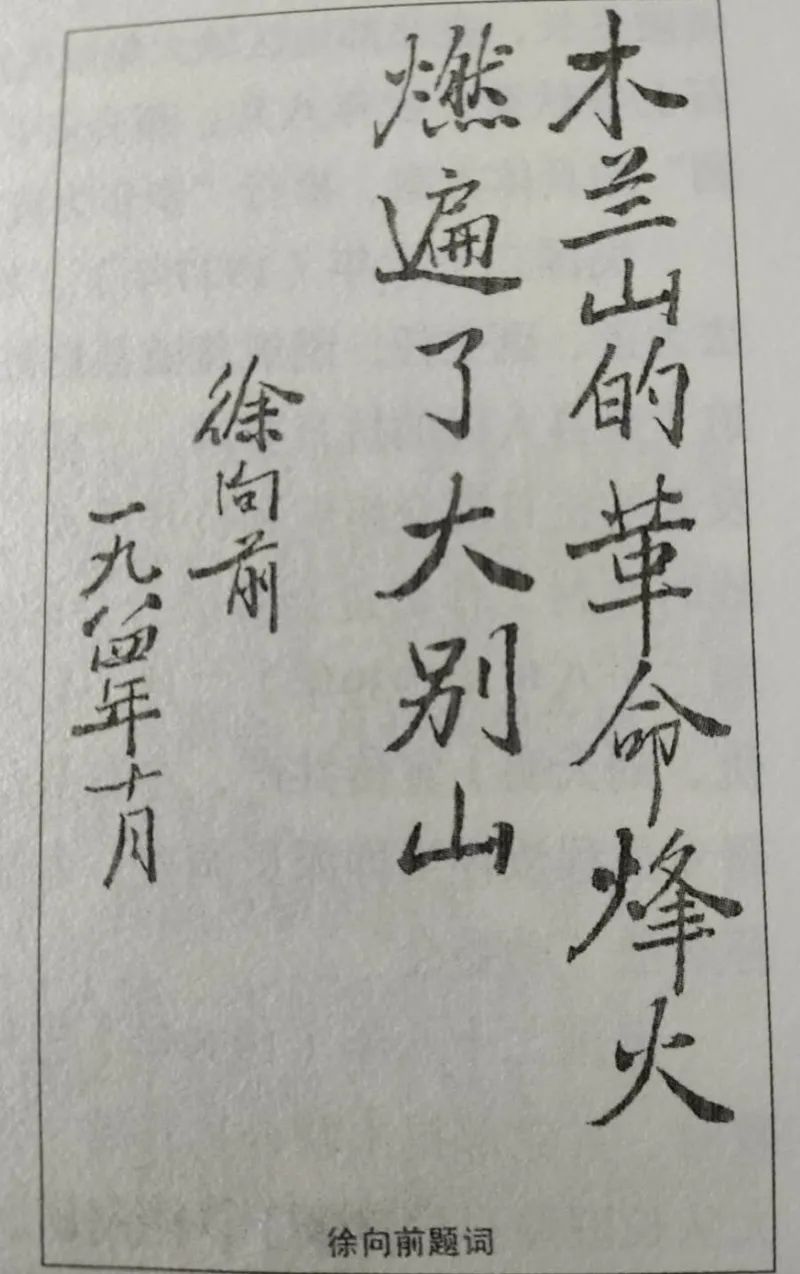 木兰山的革命烽火
燃遍了大别山
徐向前
一九八四年十月
徐向前题词